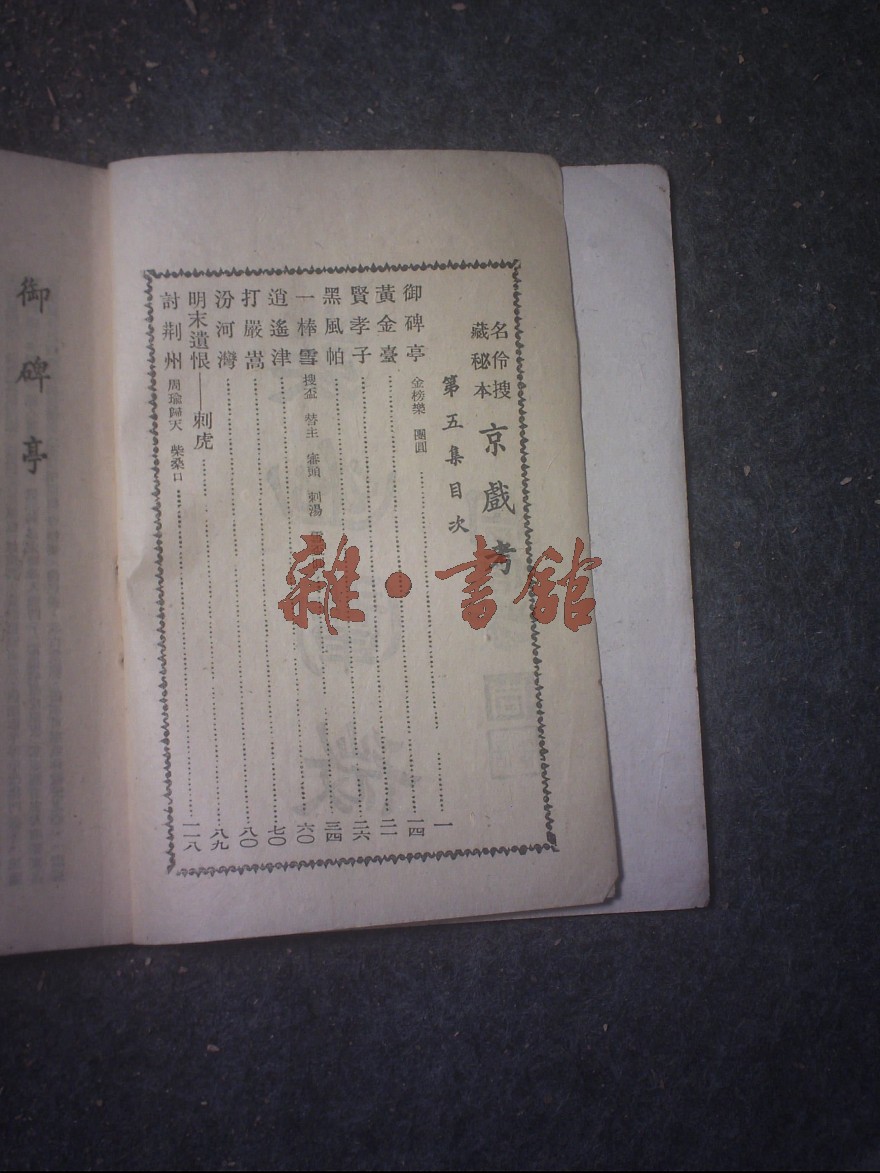 名伶搜
藏秘本
京戲考
第五集目次
御碑亭 金榜樂 團圓 一
黃金臺 一四
賢孝子 二一
黑風帕 二六
一棒雪 搜盃 替主 審頭 刺湯 三四
逍遙津 六〇
打嚴嵩 七〇
汾河灣 八〇
明末遺恨——刺虎 八九
討荆州 周瑜歸天 柴桑口 一一八
御碑亭
雜·書館